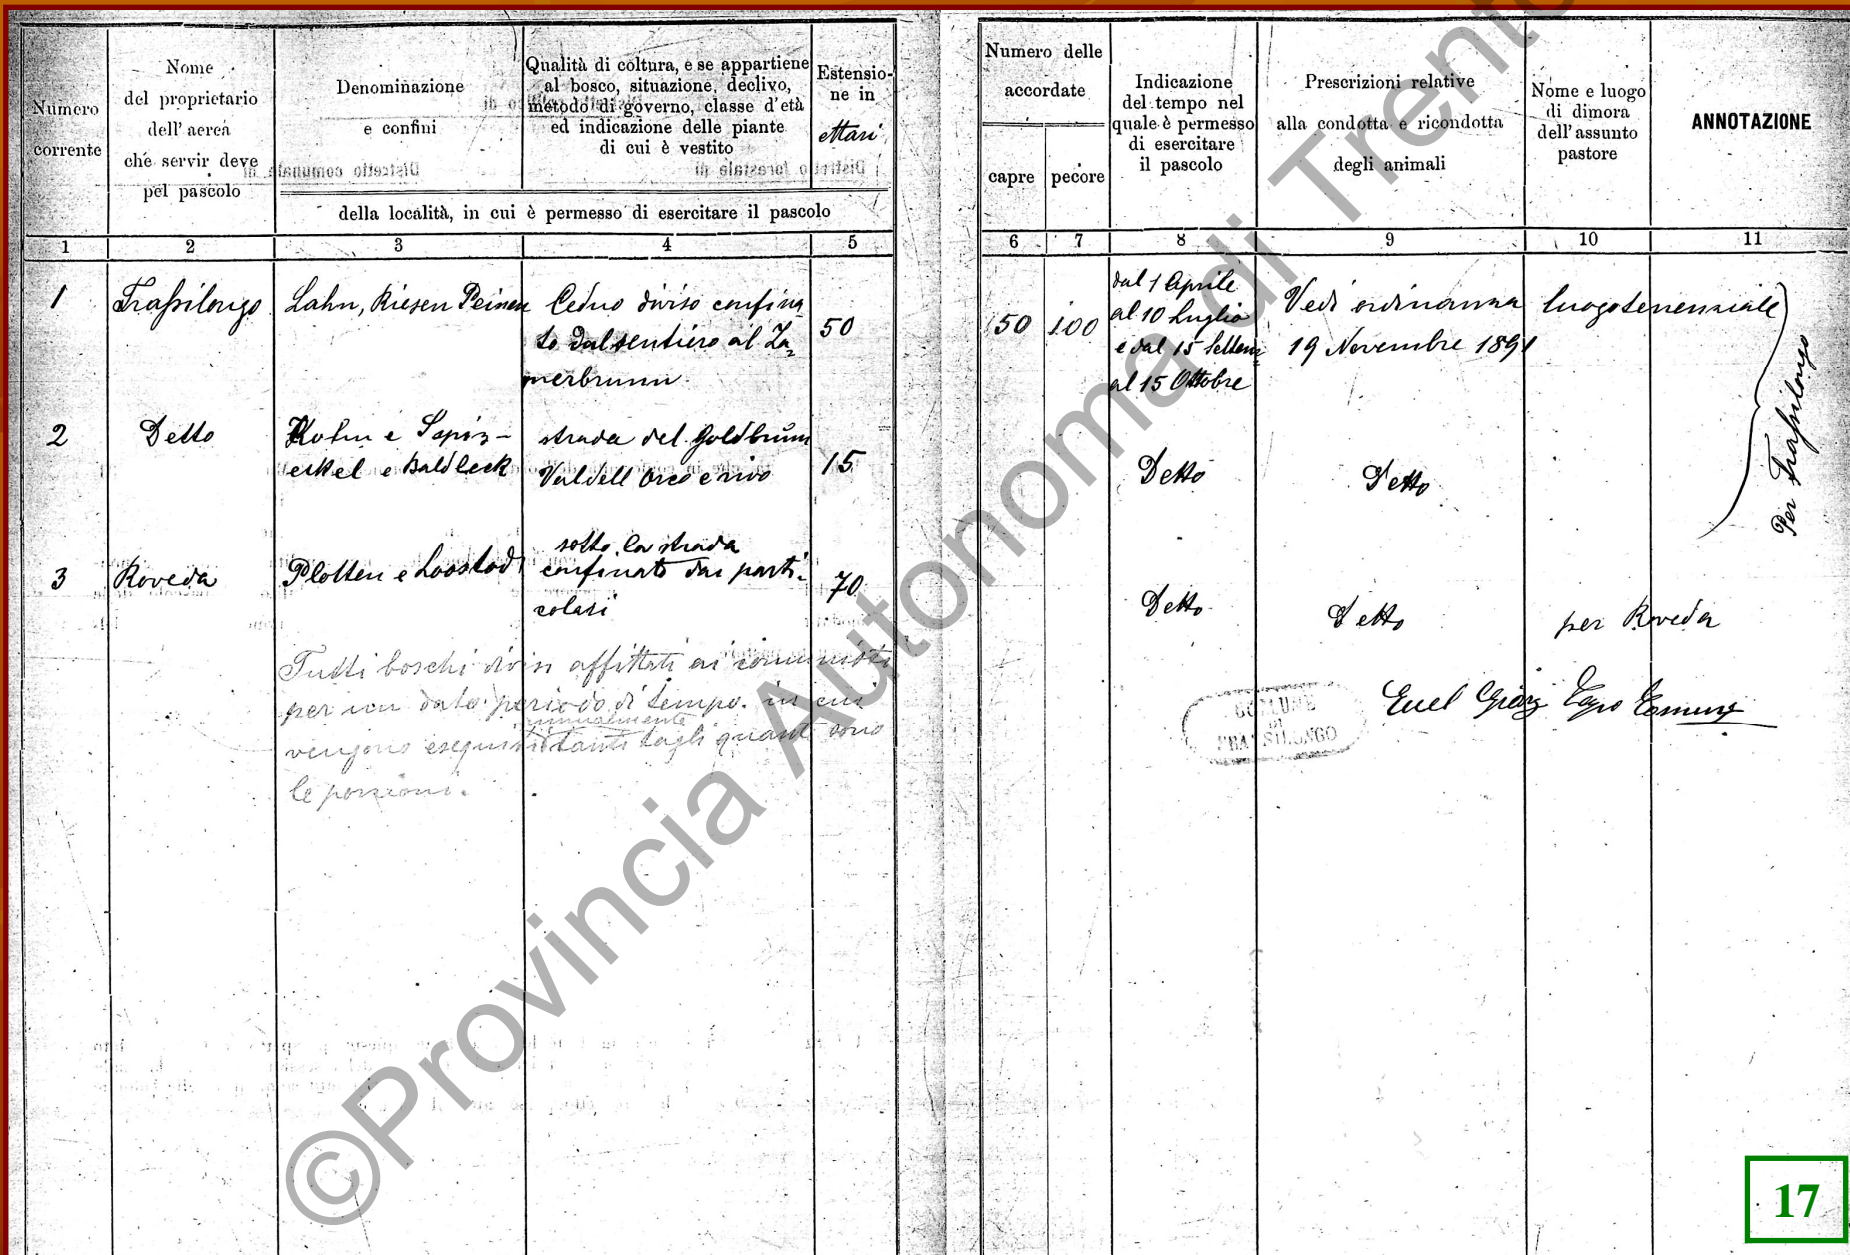 Numero
corrente
Nome
del proprietario
dell' aerea
che servir deve
pel pascolo
Denominazione
e confini
Qualità di coltura, e se appartiene
al bosco, situazione, declivo,
metodo di governo, classe d'età
ed indicazione delle piante
di cui è vestito
Estensio-
ne in
ettari
della località, in cui è permesso di esercitare il pascolo
Numero delle
accordate
capre pecore
Indicazione
del tempo nel
quale è permesso
di esercitare
il pascolo
Prescrizioni relative
alla condotta e ricondotta
degli animali
Nome e luogo
di dimora
dell' assunto
pastore
ANNOTAZIONE
1 2 3 4 5 6 7 8 9 10 11
1 Frassilongo Lahn, Riesen Peinen
Ceduo diviso confina-
to dal sentiero al Za-
merbrunn
50
50 100
dal 1 Aprile
al 10 Luglio
e dal 15 Settem
al 15 Ottobre
Vedi ordinanza luogotenenziale
19 Novembre 1891
2 Detto
Kofin e Spiz-
eckel e Baldleck
strada del Goldbrunn
Valdell Orco e rivo
15
Detto Detto
Per Frassilongo
3 Roveda Plotten e Loostod
sotto la strada
confinato dai parti-
colari
70
Detto Detto per Roveda
Tutti boschi divisi affittati ai comunisti
per un dato periodo di tempo in cui
annualmente
vengono eseguiti tanti tagli quanti sono
le porzioni.
COMUNE
DI
FRASSILONGO
Capo Comune
17
©Provincia Autonoma di Trento